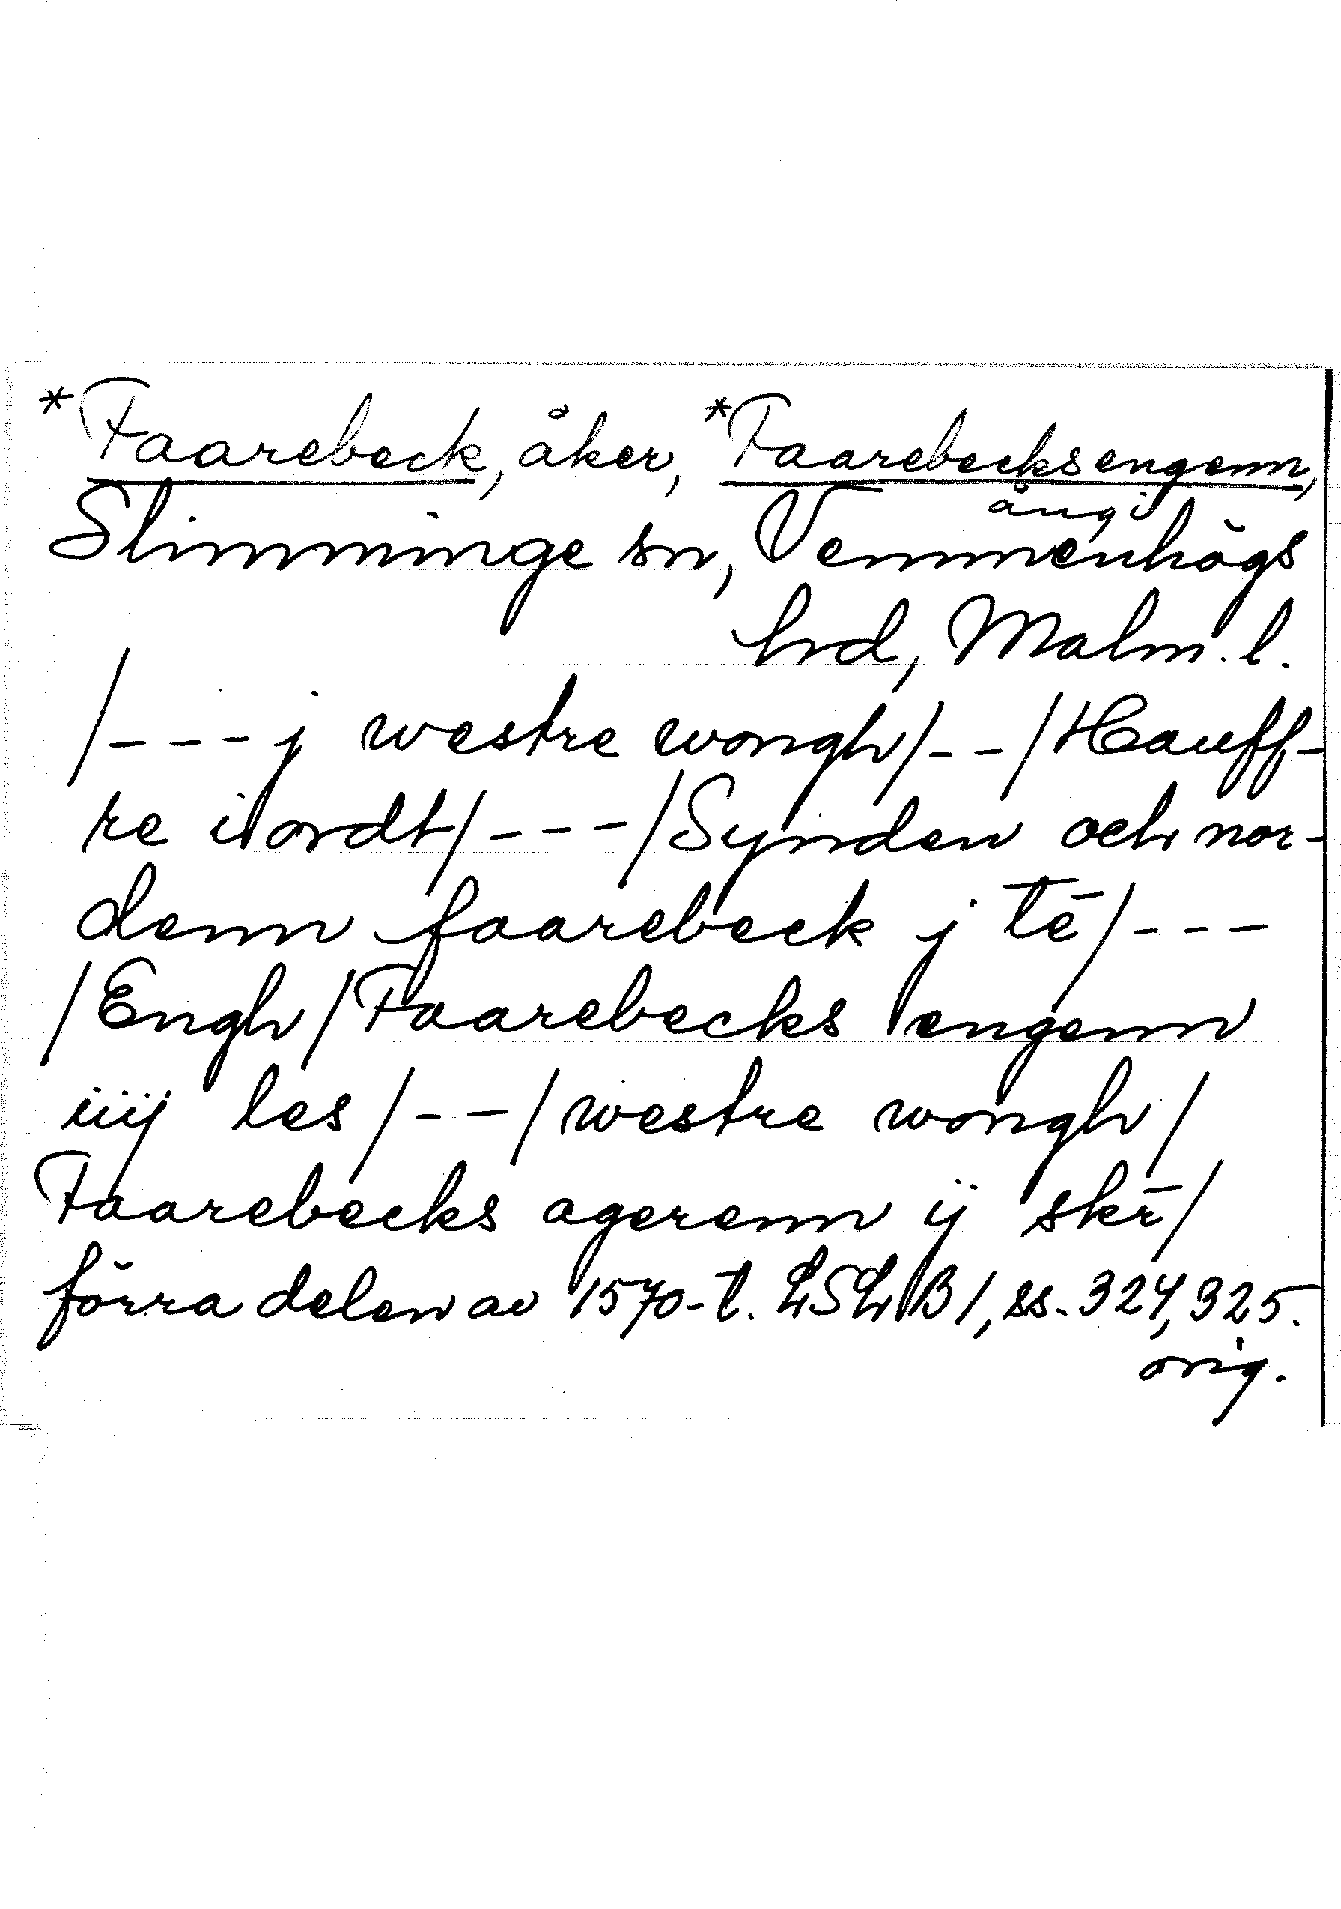 *Faarebeck, åker, *Faarebecksengenn,
äng i
Slimminge sn, Vemmenhögs
hd, Malm. l.
/--- j westre wongh/--/Hauff-
re iordt/---/Synden och nor-
denn faarebeck j tē/---
/Engh/Faarebecks engenn
iiij les/--/westre wongh/
Faarebecks agerenn ij skr̄/
förra delen av 1570-t. LSLB1, ss. 324, 325.
orig.